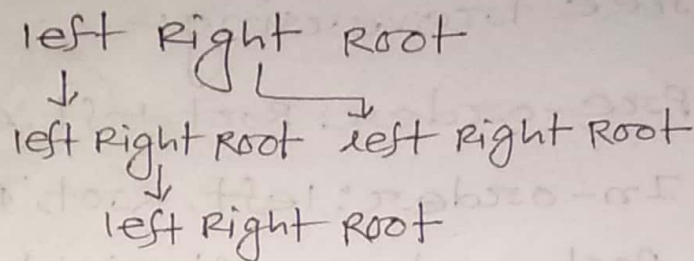 left Right Root
left Right Root left Right Root
left Right Root